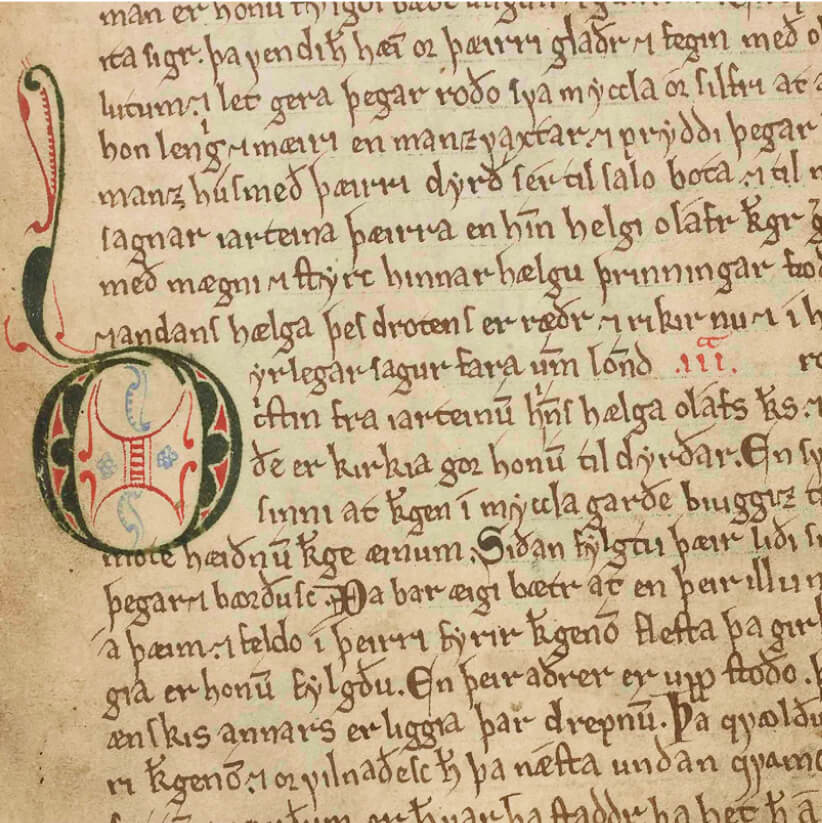 ita sigr. þa ꝩendiſꝼ hæi or þæirri glaðr ⁊ fegin með
lutum. ⁊ let gera þegar roðo sꝩa myccla or silfri at
hon leng ⁊ mæiri en manz ꝩaxtar. ⁊ pryddi þegar
manz hus með þæirri dyrð ser til salo bota. ⁊ til
sagnar iarteina þæirra en hin̄ helgi olafr kgr
með mægni ⁊ styrc hinnar hælgu þrinningar
⁊ andans hælga þes drotens er ræðr ⁊ rikir nu ⁊ i
Ðyrlegar sagur fara um̄ lond .iii.
fra iarteinū hn̄s hælga olafs ks. ⁊
ðe er kirkia gor honū til dyrðar. En
sinni at kgen i myccla garðe biuggiz
mote hæiðnū kge æinum. Siðan fylgtu þæir liði
þegar ⁊ borðusc. Þa bar æigi bætr at en þeir illu
a þæim. ⁊ feldo i þeirri fyrir kgenō flesta þa
gia er honū fylgðu. En þeir aðrer er upp stoðo.
ænskis annars er liggia þar drepnū. Þa
ri kgenō. ⁊ or ꝩilnaðesc h̄ þa næsta undan